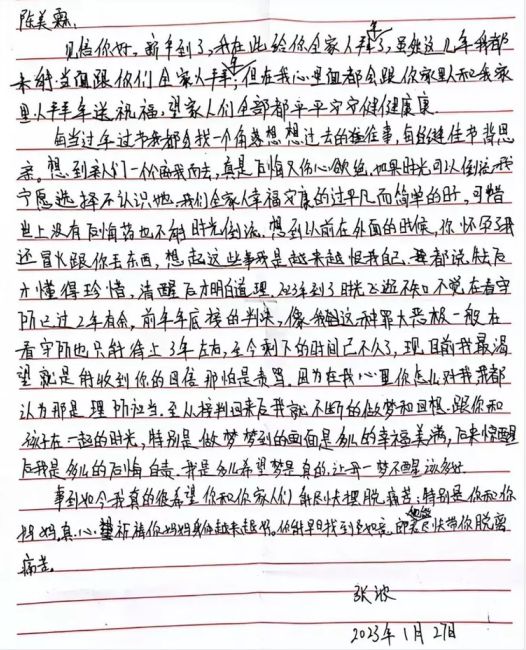 陈美霖:
见信你好,新年到了,我在此给你全家人拜年了,虽然这几年我都
未能当面跟你们全家人拜年,但在我心里面都会跟你家里人和我家
里人拜年送祝福,望家人们全部都平平安安健健康康.
每当过年过节我都会找一个角落想想过去的往事,
亲。想到亲人们一个个离我而去,真是后悔又伤心欲绝,如果时光可以倒流我
宁愿选择不认识她.我们全家人幸福安康的过平凡而简单的日子,可惜
世上没有后悔药也不能时光倒流.想到以前在外面的时候,你怀孕我
还冒火跟你丢东西,想起这些事我是越来越恨我自己.都说失去后
才懂得珍惜,清醒后才明白道理.2023年到了时光飞逝不知不觉在看守
所已过2年有余,前年年底接的判决,像我们这种罪大恶极一般在
看守所也只能待上3年左右,至今剩下的时间已不久了,现目前我最渴
望就是能收到你的回信那怕是责骂.因为在我心里你怎么对我我都
认为那是理所应当.至从接判回来后我就不断的做梦和回想.跟你和
孩子在一起的时光,特别是做梦梦到的画面是多么的幸福美满,后来惊醒
后我是多么的后悔自责.我是多么希望梦是真的,让我一梦不醒该多好.
事到如今我真的很希望你和你家人们能尽快摆脱痛苦:特别是你和你
妈妈,真心祈祷你妈妈身体越来越好.你能早日找到如意郎君尽快带你脱离
痛苦.
张波
2023年1月27日